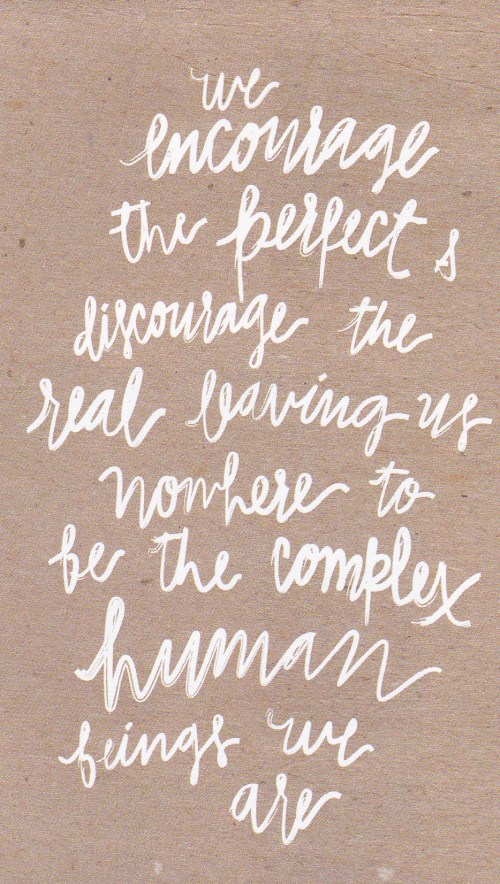 we
encourage
the perfect &
discourage the
real leaving us
nowhere to
be the complex
human
beings we
are